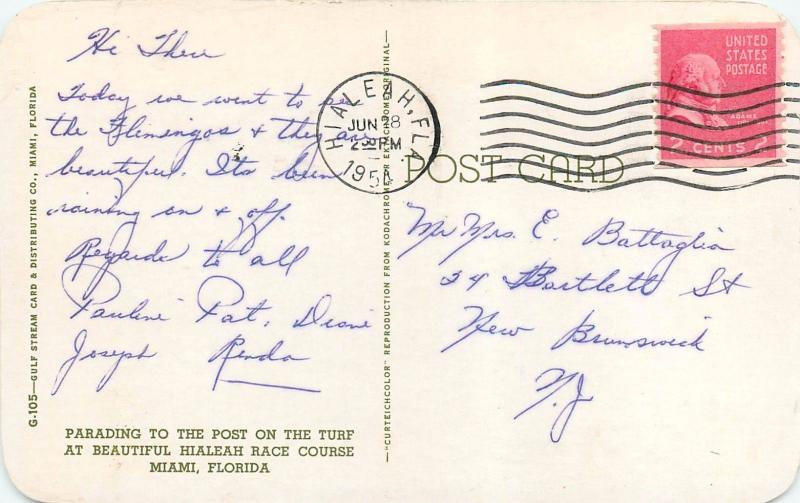 Hi There
Today we went to see
the Flimingos & they are
beautiful. Its been
raining on & off.
Regards to all
Pauline Pat, Diane
Joseph Renda
PARADING TO THE POST ON THE TURF
AT BEAUTIFUL HIALEAH RACE COURSE
MIAMI, FLORIDA
G-105—GULF STREAM CARD & DISTRIBUTING CO., MIAMI, FLORIDA
—"CURTEICHCOLOR" REPRODUCTION FROM KODACHROME OR EKTACHROME ORIGINAL—
HIALEAH, FLA
JUN 28
2 30 PM
UNITED
STATES
POSTAGE
ADAMS
2 CENTS 2
POST CARD
Mr Mrs. E. Battaglia
24 Bartlett St
New Brunswick
N.J